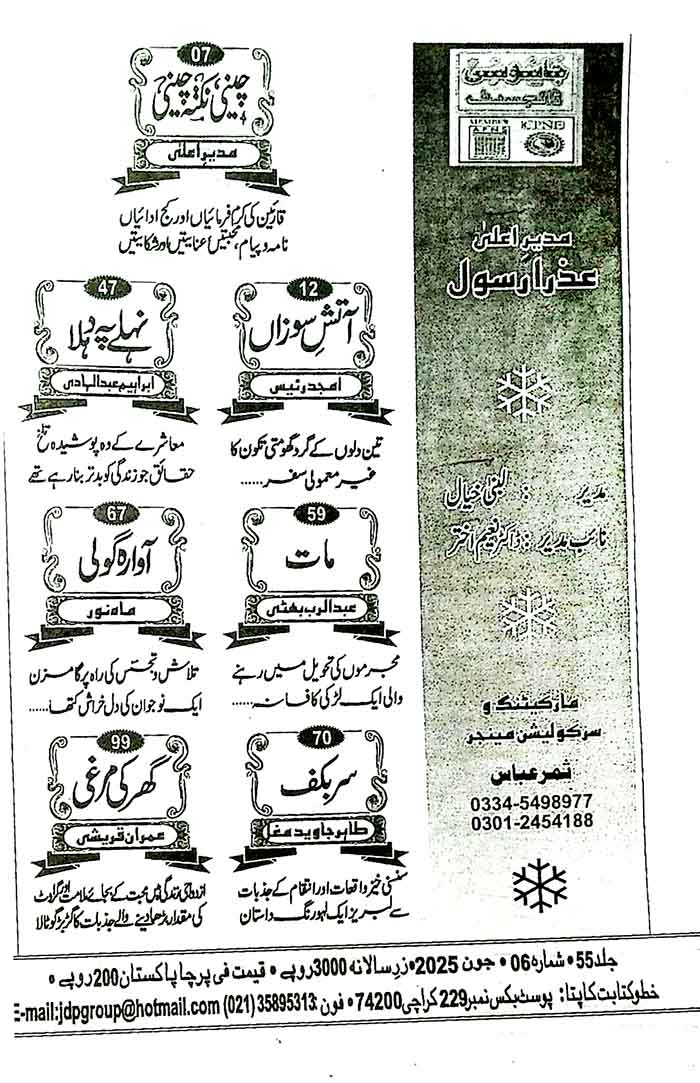 جاسوسی
ڈائجسٹ
MEMBER
APNS
CPNE
مدیر اعلیٰ
عذرا رسول
مدیر : لبنیٰ خیال
نائب مدیر : ڈاکٹر نسیم اختر
مارکیٹنگ و
سرکولیشن مینجر
ثمر عباس
0334-5498977
0301-2454188
07
چینی نکتہ چینی
مدیر اعلیٰ
قارئین کی کرم فرمائیاں اور کج ادائیاں
نامہ و پیام، محبتیں، عنایتیں اور شکایتیں
12
آتش سوزاں
امجد رئیس
تین دلوں کے گرد گھومتی تکون کا
غیر معمولی سفر......
47
نہلے پہ دہلا
ابراہیم عبدالہادی
معاشرے کے وہ پوشیدہ تلخ
حقائق جو زندگی کو بدتر بنا رہے تھے
59
مات
عبدالرب بھٹی
مجرموں کی تحویل میں رہنے
والی ایک لڑکی کا فسانہ......
67
آوارہ گولی
ماہ نور
تلاش و تجسس کی راہ پر گامزن
ایک نوجوان کی دل خراش کتھا......
70
سر بکف
طاہر جاوید مغل
سنسنی خیز واقعات اور انتقام کے جذبات
سے لبریز ایک لہو رنگ داستان
99
گھر کی مرغی
عمران قریشی
ازدواجی زندگی میں محبت کے بجائے ملامت اور گراوٹ
کی مقدار بڑھا دینے والے جذبات کا گڑبڑ گوٹالا
جلد 55 • شمارہ 06 • جون 2025 • زرِ سالانہ 3000 روپے • قیمت فی پرچا پاکستان 200 روپے •
خط و کتابت کا پتا: پوسٹ بکس نمبر 229 کراچی 74200 • فون: 35895313 (021) E-mail:jdpgroup@hotmail.com